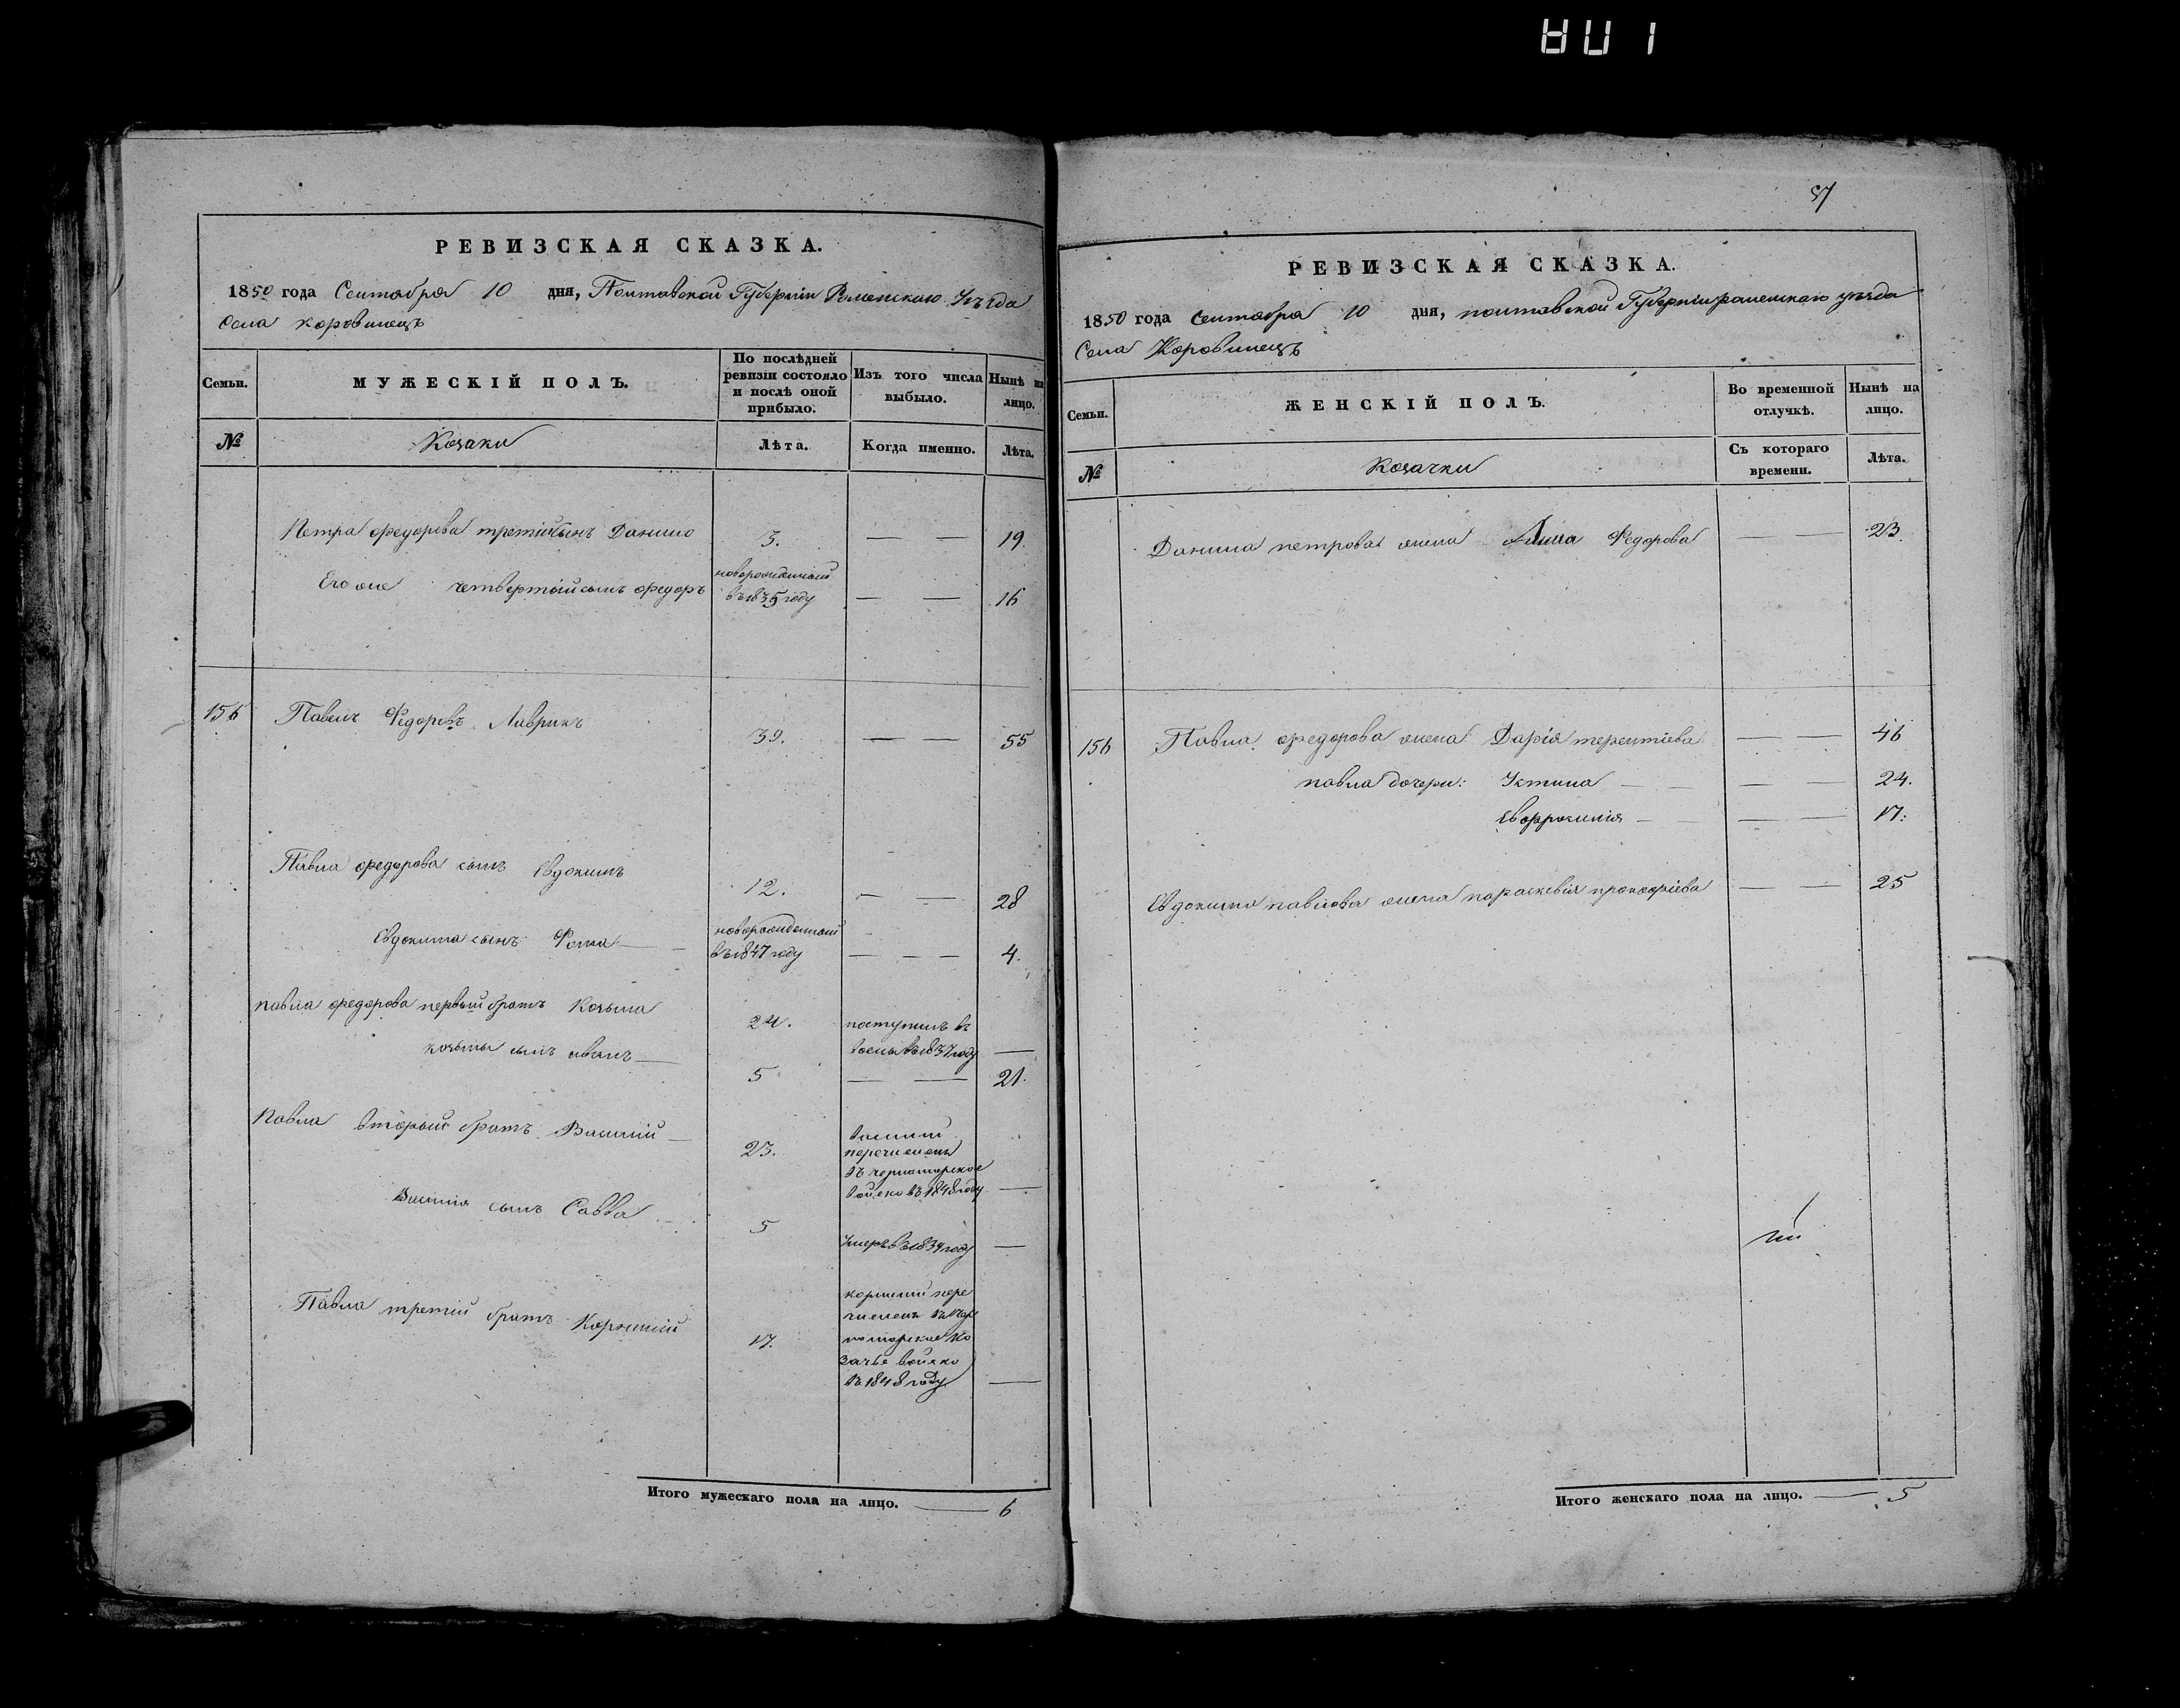 РЕВИЗСКАЯ СКАЗКА.
1850 года Сентября 10 дня, Полтавской Губерніи Роменскаго Уѣзда
Села Коровинецъ
Семьи.
МУЖЕСКІЙ ПОЛЪ.
По послѣдней ревизіи состояло и послѣ оной прибыло.
Изъ того числа выбыло.
Нынѣ на лицо.
№
Козаки
Лѣта.
Когда именно.
Лѣта.
Петра федорова третій сынъ Данило 3. — — 19.
Его же четвертый сынъ федоръ новорожденный въ 1835 году — — 16
156 Павелъ Федоровъ Лаврикъ 39. — — 55
Павла федорова сынъ Евдокимъ 12. — — 28
Евдокима сынъ Фома — новорожденный въ 1847 году — — — 4.
павла федорова первый братъ Козьма 24. поступилъ въ
козьмы сынъ иванъ — въ 1837 году —
5 — — 21.
Павла вторый братъ Василий — 23. василий
перечисленъ
въ черноморское
войско въ 1848 году —
Василия сынъ Савва 5
Умеръ въ 1834 году —
Павла третий братъ Корнилий 17. корнилий пере
численъ въ Чер
номорское Ко
зачье войско
въ 1848 году —
Итого мужескаго пола на лицо. — 6
РЕВИЗСКАЯ СКАЗКА.
1850 года Сентября 10 дня, полтавской Губерніи роменскаго уѣзда
Села Коровинецъ
Семьи.
ЖЕНСКІЙ ПОЛЪ.
Во временной отлучкѣ.
Нынѣ на лицо.
№
Козачки
Съ котораго времени.
Лѣта.
Данила петрова жена Федорова — — 23.
156 Павла федорова жена Дарія терентіева — — 46
павла дочери: Устина — — — — 24.
Евфросинія — — — — 17.
Евдокима павлова жена параскевія прокофіева — — 25
Итого женскаго пола на лицо. — 5